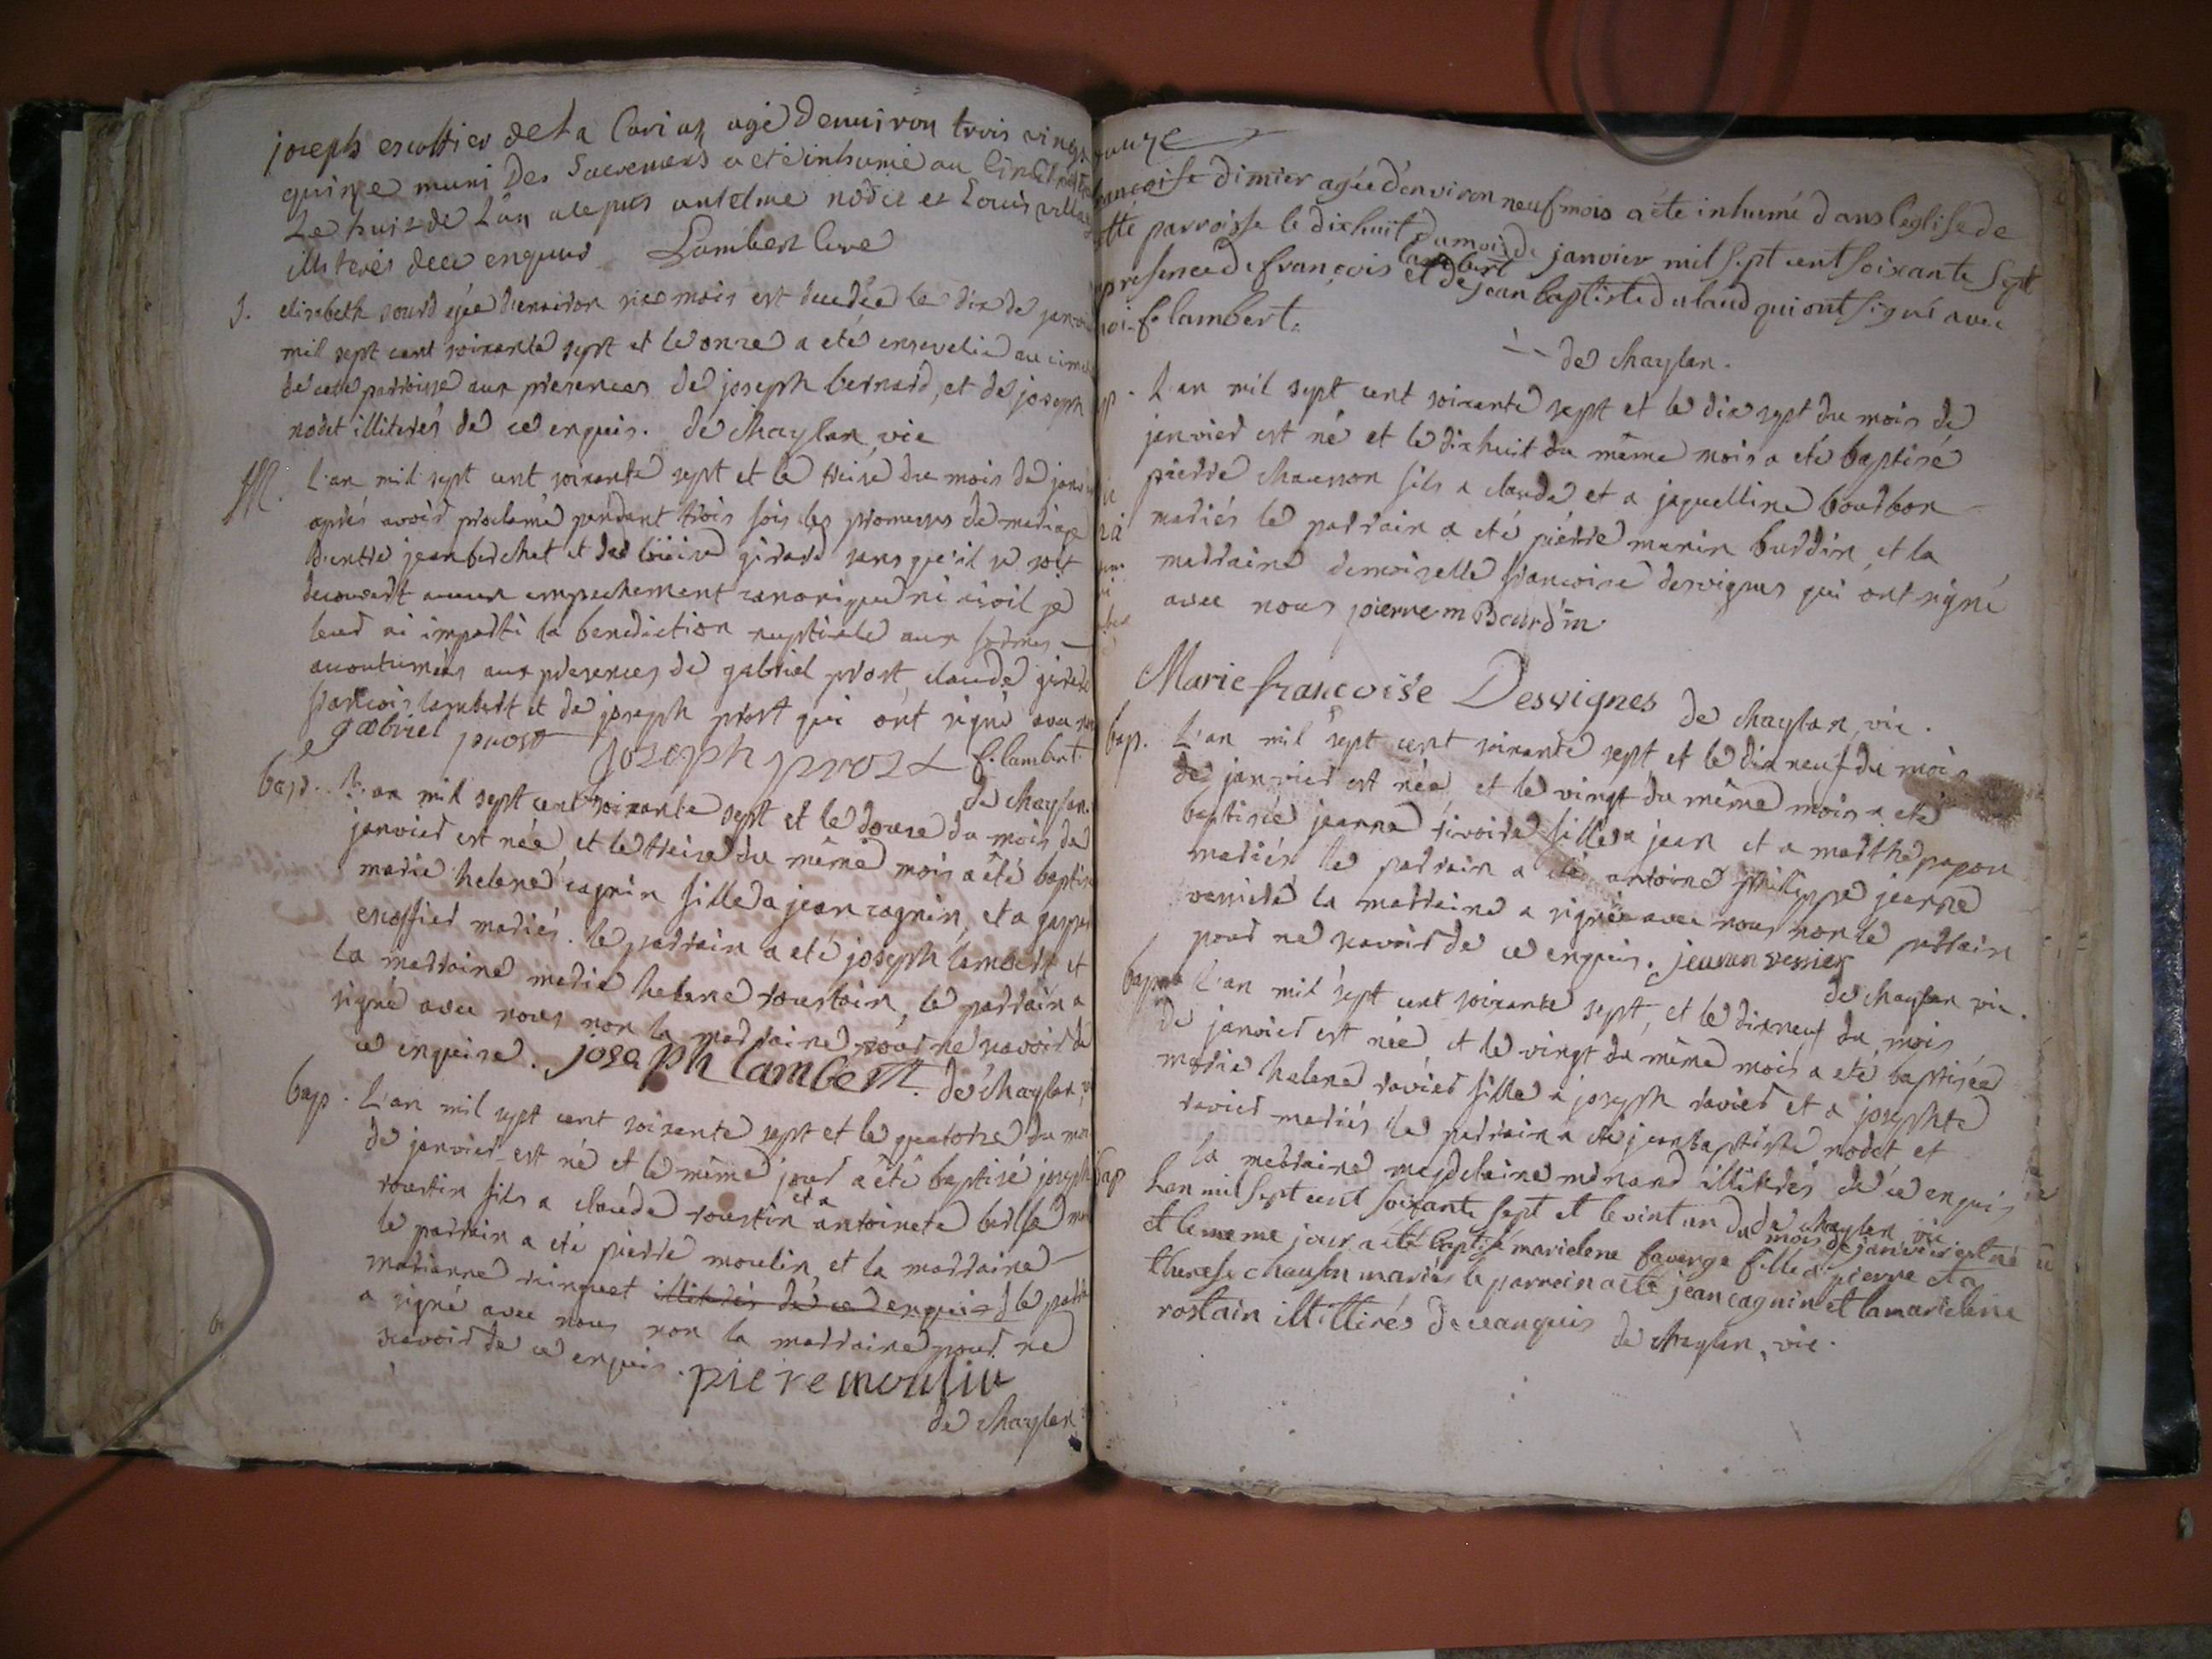 joseph escoffier de la agé denuiron trois vings
quinze muni des Sacremens a eté inhumé au
Le huit de L'an antelme nodet et Louis
illiterés de ce enquis Lambert Cure
S. elisabeth sourd agée d'environ six mois est decedée le dix de janvi
mil sept cent soixante sept et le onze a eté ensevelie au cime
de cette parroisse aux presences de joseph bernard, et de joseph
nodet illiterés de ce enquis. de chaylan vic
M. L'an mil sept cent soixante sept et le treize du mois de janv
aprés avoir proclamé pendant trois fois les promesses de mariage
d'entre jean berchet et girard sans qu'il se soit
decouvert aucun empechement canonique ni civil je
leur ai imparti la benediction nuptiale aux formes
accoutumées aux presences de gabriel prost, claude girard
francois lambert et de joseph prost qui ont signé avec nous
gabriel prost joseph prost f. lambert
de chaylan.
bap. L'an mil sept cent soixante sept et le douze du mois de
janvier est née, et le treize du même mois a été baptis
marie helene cagnin fille a jean cagnin, et a
escoffier mariés. le parrain a eté joseph lambert et
la marraine marie helene roustain, le parrain a
signé avec nous non la marraine pour ne savoir de
ce enquise. joseph lambert. de chaylan, v
bap. L'an mil sept cent soixante sept et le quatorze du moi
de janvier est né et le même jour a êté baptisé joseph
roustin fils a claude roustin et a antoinete mar
le parrain a eté pierre moulin, et la marraine
marianne ringuet illiterés de ce enquis le parr
a signé avec nous non la marraine pour ne
scavoir de ce enquis. piere moulin
de chaylan
francoise dimier agée d'environ neuf mois a éte inhumé dans l'eglise de
cette parroisse le dixhuit du mois de janvier mil sept cent soixante sept
presence de françois lambert et de jean baptiste dulaud qui ont signé avec
moi. f. lambert.
de chaylan.
bap. L'an mil sept cent soixante sept et le dix sept du mois de
janvier est né et le dixhuit du même mois a eté baptisé
pierre chausson fils a claude et a jaquelline bourbon
mariés le parrain a eté piérre burdin, et la
marraine demoiselle francoise desvignes qui ont signé
avec nous pierre m Bourdin
Marie francoise Desvignes de chaylan, vic.
bap. L'an mil sept cent soixante sept, et le dix neuf du mois
de janvier est née, et le vingt du même mois a eté
baptisée jeanne fille a jean et a marthe papon
mariés le parrain a été antoine philippe jeanne
la marraine a signée avec nous non le parrain
pour ne scavoir de ce enquis. jeanne vessier
de chaylan vic.
bap. L'an mil sept cent soixante sept, et le dixneuf du mois
de janvier est née et le vingt du même mois a eté baptisée
marie helene ravier fille a joseph ravier et a josephte
ravier mariés le parrain a eté jean baptiste nodet et
la marraine magdelaine menand illiterés de ce enquis
de chaylan vic
bap Lan mil sept cent soixante sept et le vint un du mois de janvier est né
et le meme jour a été baptisé marielene faverge fille a pierre et a
therese chauson mariés le parrein a eté jean cagnin et la marielene
rostain illittirés de ceanquis
de chaylan, vic.